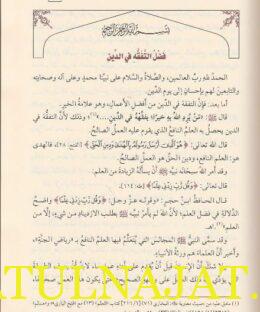 بسم الله الرحمن الرحيم
فضل التفقه في الدين
الحمد لله رب العالمين، والصلاة والسلام على نبينا محمد وعلى آله وصحابته
والتابعين لهم بإحسان إلى يوم الدين.
أما بعد: فإن التفقه في الدين من أفضل الأعمال، وهو علامة الخير.
قال ﷺ: «من يرد الله به خيرا؛ يفقهه في الدين...»(١)؛ وذلك لأن التفقه في
الدين يحصل به العلم النافع الذي يقوم عليه العمل الصالح.
قال تعالى: ﴿هو الذي أرسل رسوله بالهدى ودين الحق﴾ [الفتح: ٢٨]، فالهدى
هو: العلم النافع، ودين الحق هو: العمل الصالح.
وقد أمر الله سبحانه نبيه ﷺ أن يسأله الزيادة من العلم:
قال تعالى: ﴿وقل رب زدني علما﴾ [طه: ١١٤].
قال الحافظ ابن حجر: «وقوله عز وجل: ﴿وقل رب زدني علما﴾ واضح
الدلالة في فضل العلم؛ لأن الله لم يأمر نبيه ﷺ بطلب الازدياد من شيء؛ إلا من
العلم»(٢) اهـ.
وقد سمى النبي ﷺ المجالس التي يتعلم فيها العلم النافع بـ «رياض الجنة»،
وأخبر أن العلماء هم ورثة الأنبياء.
ATULNAJAT.